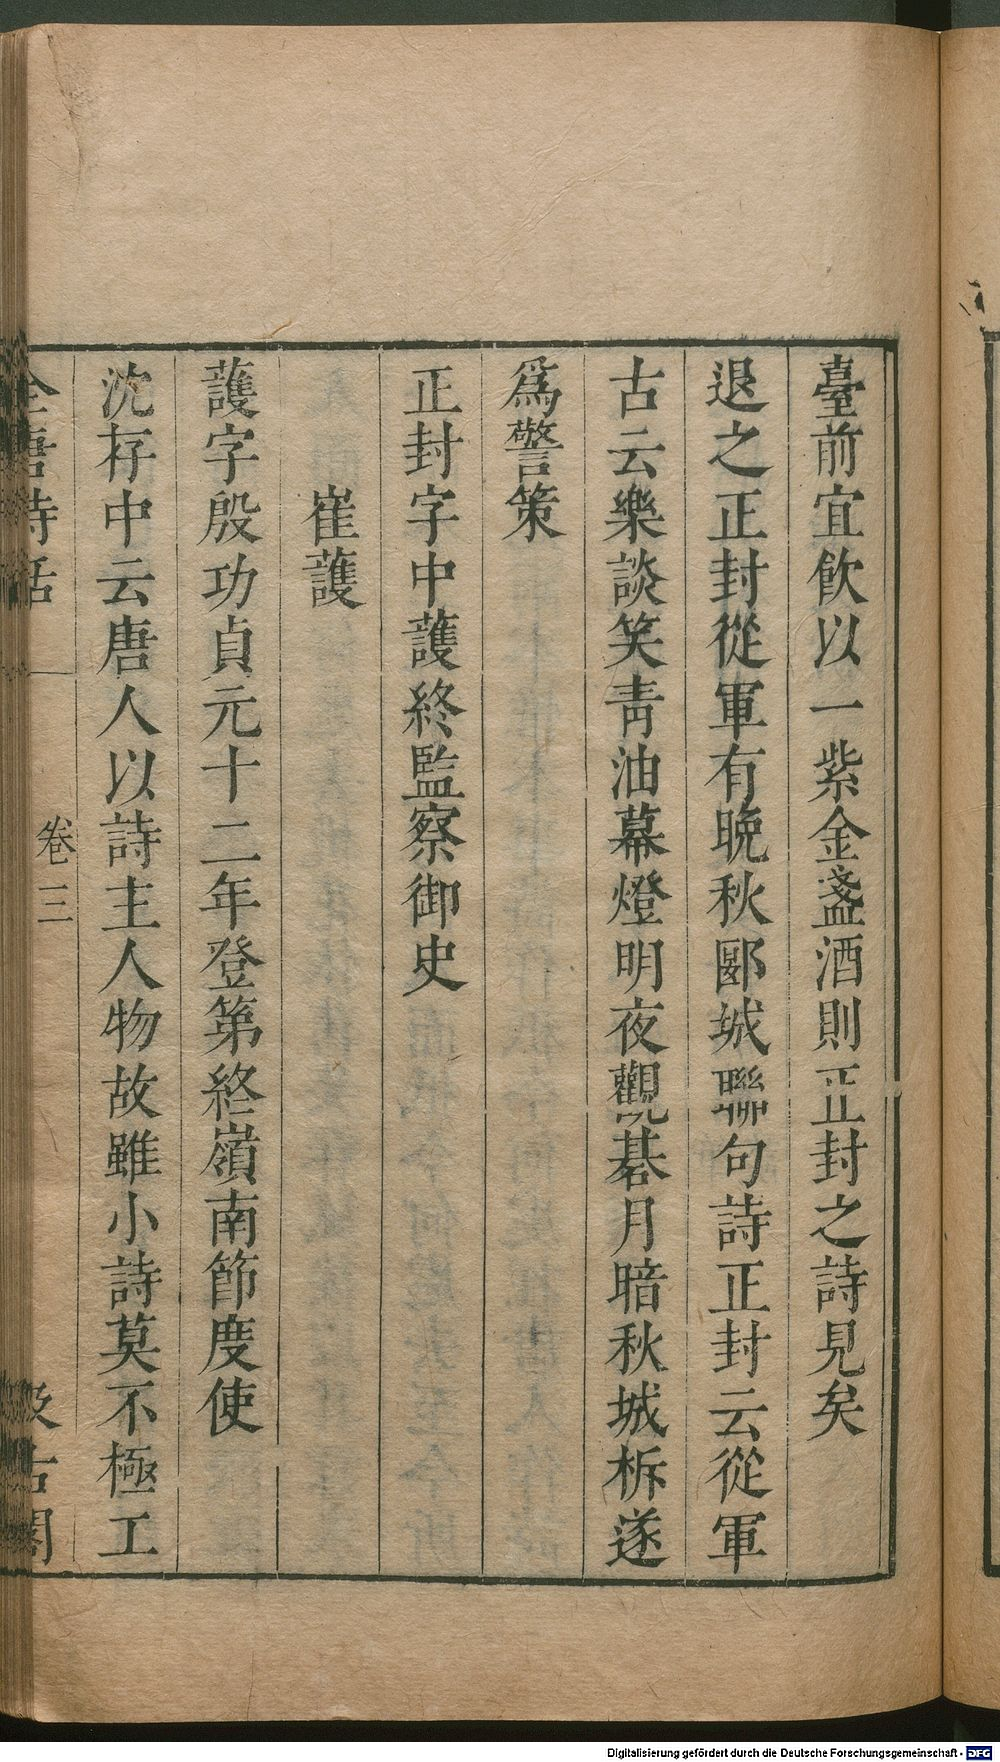 臺前宜飮以一紫金盞酒則正封之詩見矣
退之正封從軍有晚秋郾城聯句詩正封云從軍
古云樂談笑靑油幕燈明夜觀棊月暗秋城柝遂
爲警策
正封字中護終監察御史
崔護
護字殷功貞元十二年登第終嶺南節度使
沈存中云唐人以詩主人物故雖小詩莫不極工
全唐詩話 卷三 汲古閣
Digitalisierung gefördert durch die Deutsche Forschungsgemeinschaft - DFG